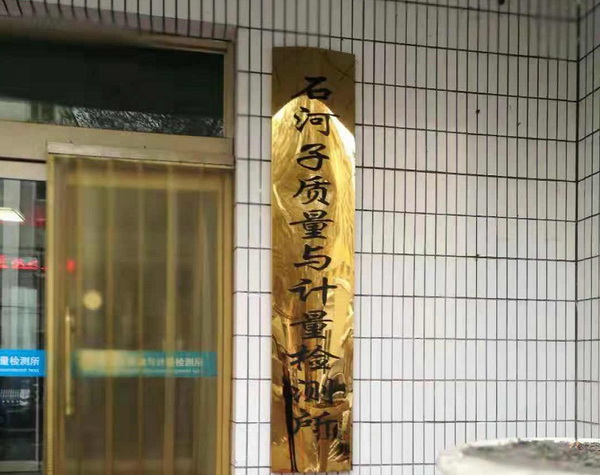 石河子质量与计量检测所
量检测所
与计量检测所